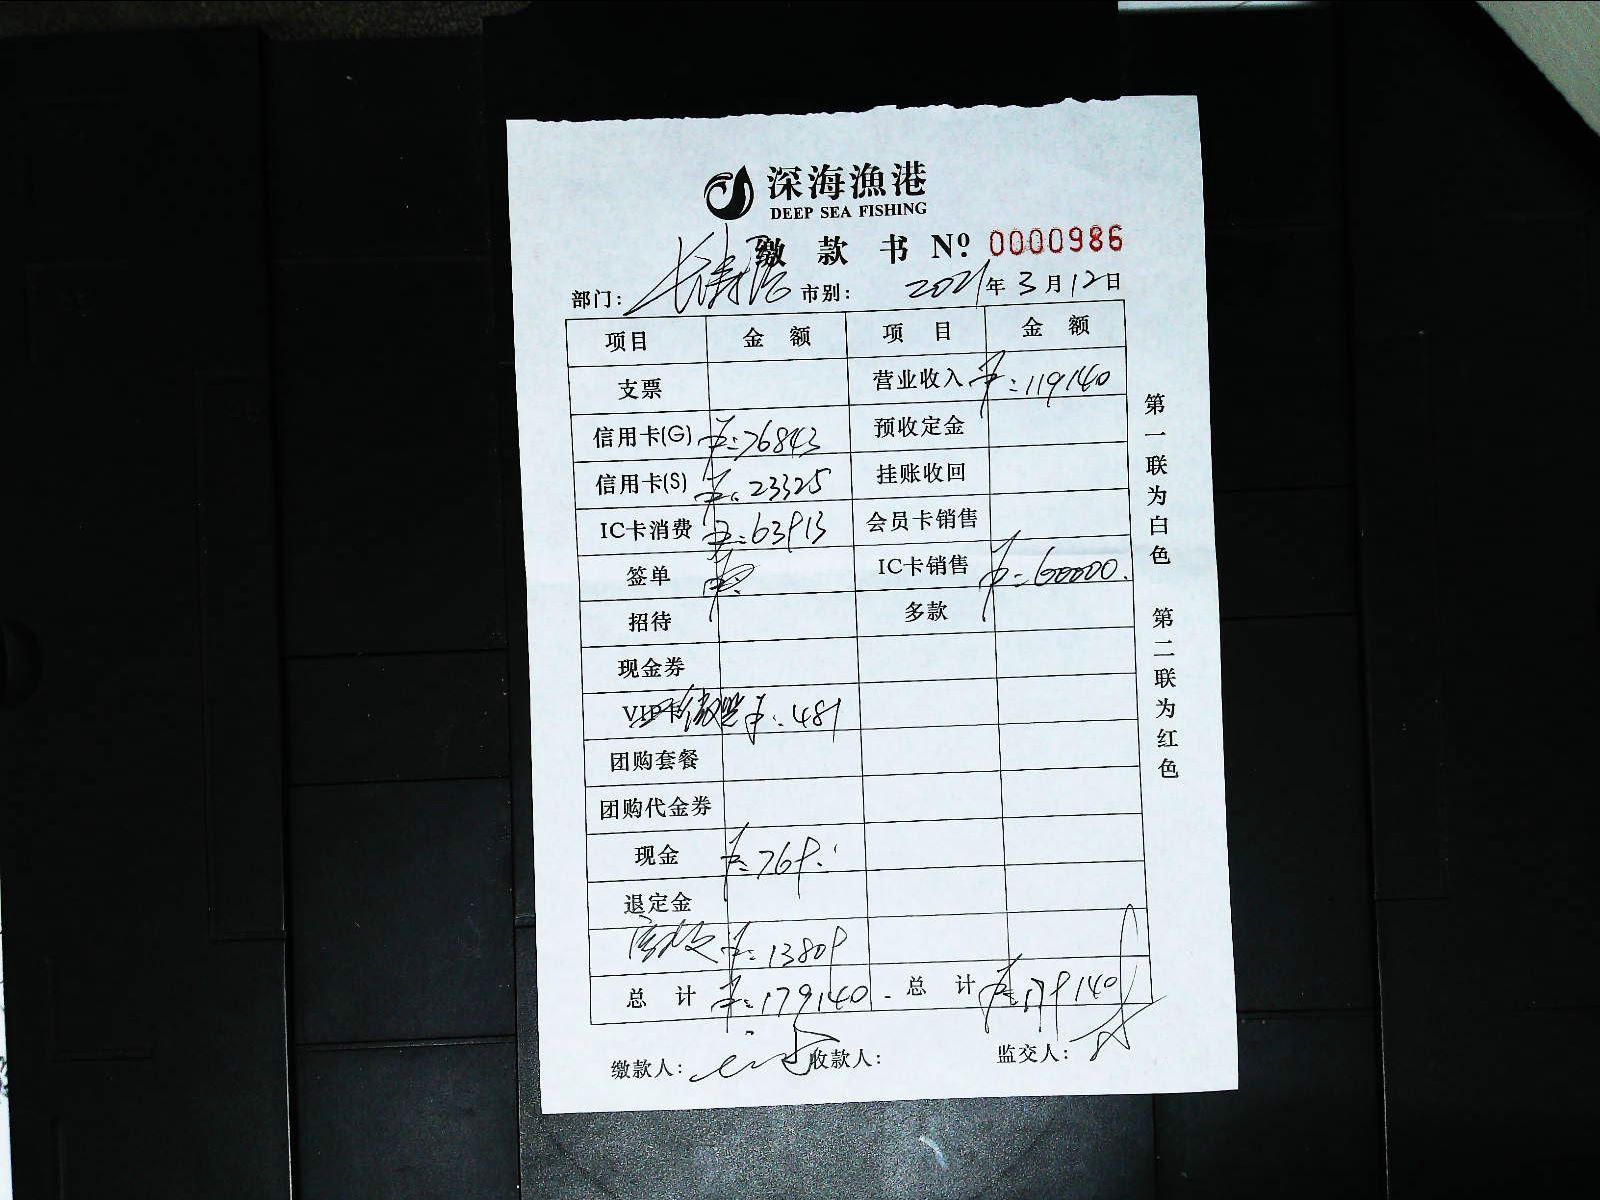 深海漁港
DEEP SEA FISHING
缴款书 Nº: 0000986
部门: 长寿路 市别: 2021年3月12日
项目 金额 项目 金额
支票 营业收入 ¥:119140
信用卡(G) ¥:76843 预收定金
信用卡(S) ¥:23325 挂账收回
IC卡消费 ¥:63913 会员卡销售
签单 IC卡销售 ¥:60000.
招待 多款
现金券
VIP卡 ¥:481
团购套餐
团购代金券
现金 ¥:769.
退定金
¥:13809
总计 ¥:179140 总计 ¥:179140
缴款人: 收款人: 监交人:
第一联为白色 第二联为红色